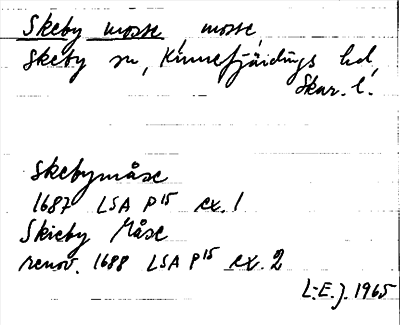 Skeby mosse, mosse,
Skeby sn, Kinnefjärdings hd,
Skar. l.
Skebymåse
1687 LSA P 15 ex. 1
Skieby Måse
renov. 1688 LSA P 15 ex. 2
L-E. J. 1965